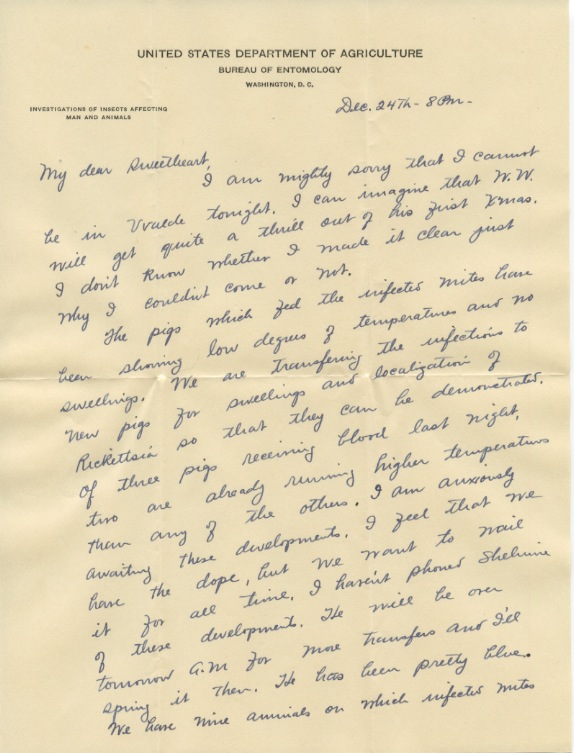 UNITED STATES DEPARTMENT OF AGRICULTURE
BUREAU OF ENTOMOLOGY
WASHINGTON, D. C.
INVESTIGATIONS OF INSECTS AFFECTING
MAN AND ANIMALS
Dec. 24th - 8 Pm -
My dear Sweetheart,
I am mighty sorry that I cannot
be in Uvalde tonight. I can imagine that W.W.
will get quite a thrill out of his first Xmas.
I don't know whether I made it clear just
why I couldn't come or not.
The pigs which fed the infected mites have
been showing low degrees of temperatures and no
swellings. We are transfering the infections to
new pigs for swellings and localization of
Rickettsia so that they can be demonstrated.
Of three pigs receiving blood last night,
two are already running higher temperatures
than any of the others. I am anxiously
awaiting these developments. I feel that we
have the dope, but we want to nail
it for all time. I haven't phoned Shelmire
of these developments. He will be over
tomorrow A.M for more transfers and I'll
spring it then. He has been pretty blue.
We have nine animals on which infected mites